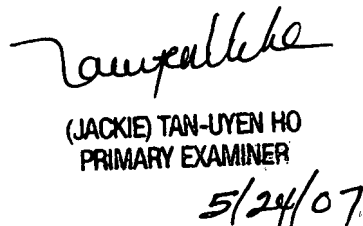 (JACKIE) TAN-UYEN HO
PRIMARY EXAMINER
5/24/07